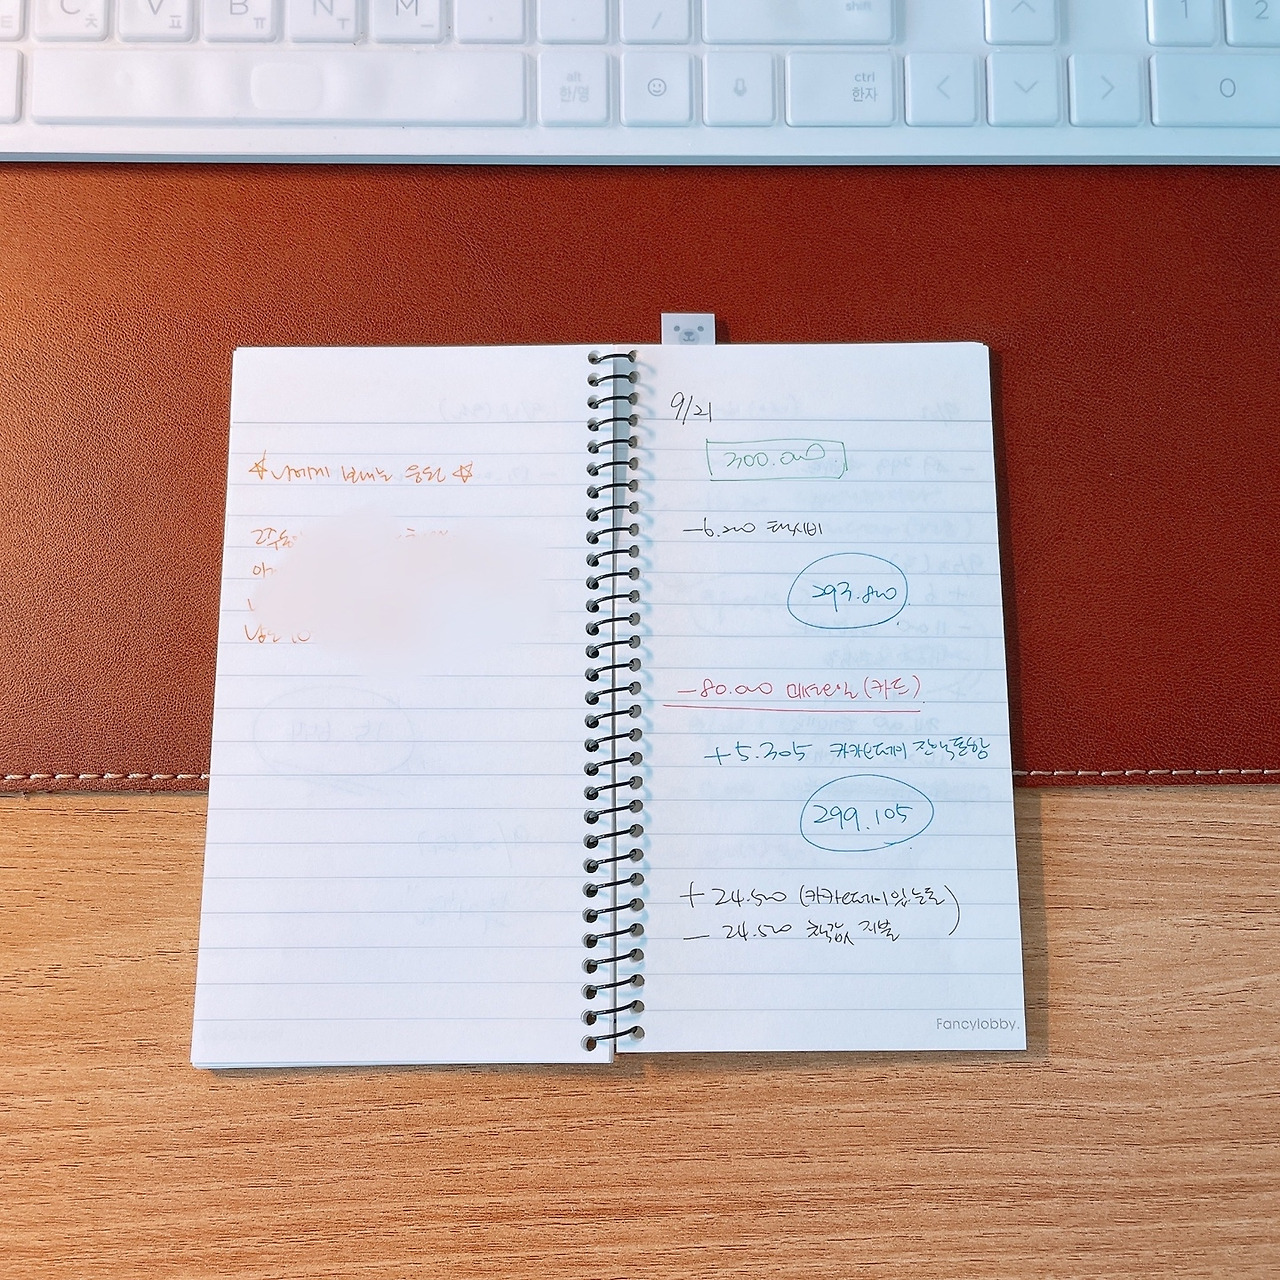 C ㅊ
V ㅍ
B ㅠ
N ㅜ
M ㅡ
.
/
shift
1
2
alt
한/영
ctrl
한자
0
☆나에게 보내는 응원☆
9/21
300.000
-6.200 택시비
293.800
-80.000 (카드)
+5.305 카카오페이 잔넉돌함
299.105
+ 24.500 (카카오페이있는돈)
- 24.500 책값 지불
Fancylobby.